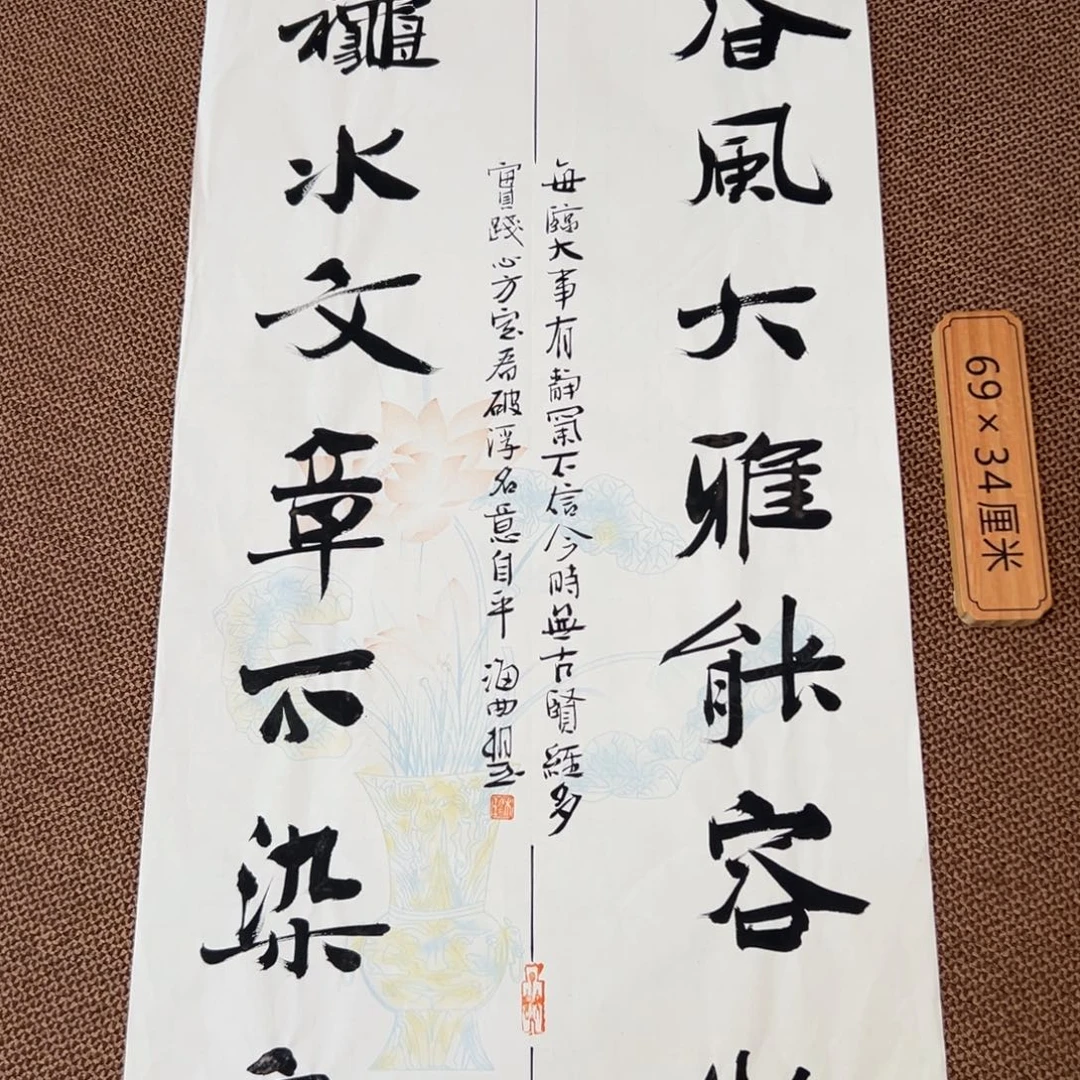 春風大雅能容
每臨大事有靜氣不信今時無古賢經多
實踐心方定看破浮名意自平 海西
龝水文章不染
69×34厘米